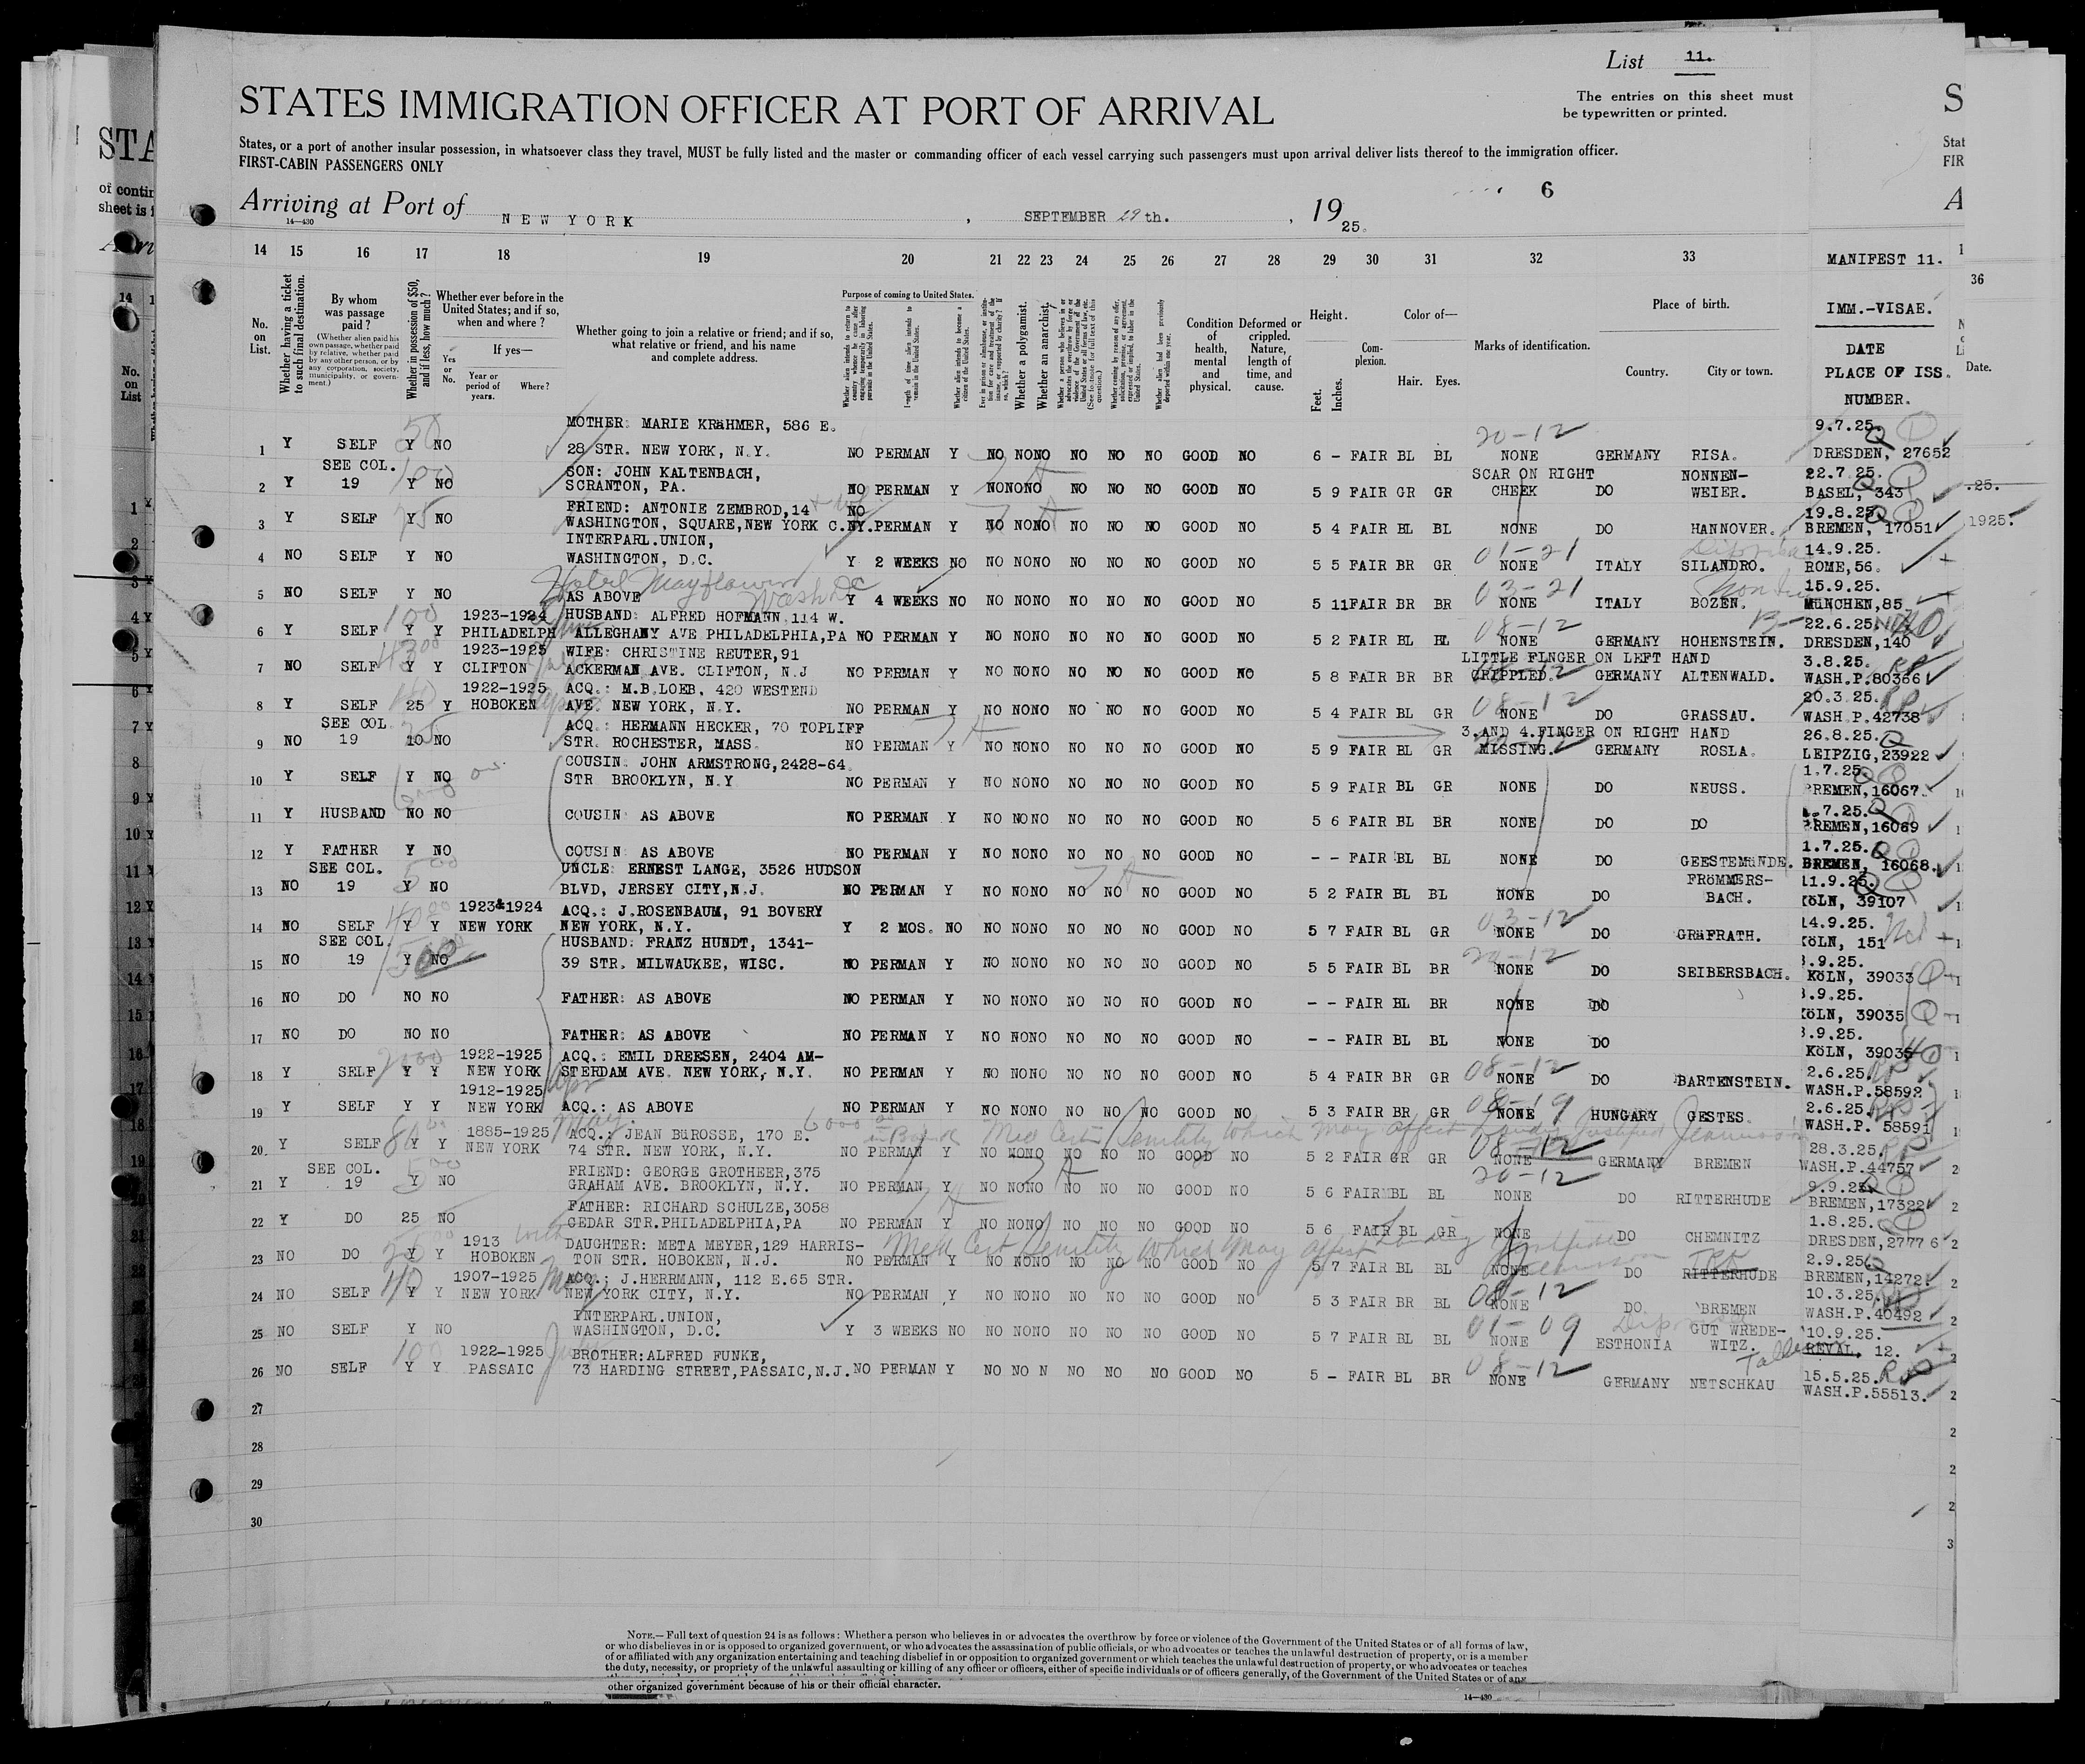 List 11.
STATES IMMIGRATION OFFICER AT PORT OF ARRIVAL
The entries on this sheet must
be typewritten or printed.
States, or a port of another insular possession, in whatsoever class they travel, MUST be fully listed and the master or commanding officer of each vessel carrying such passengers must upon arrival deliver lists thereof to the immigration officer.
FIRST-CABIN PASSENGERS ONLY
6
Arriving at Port of NEW YORK, SEPTEMBER 29th., 1925.
14—430
14 15 16 17 18 19 20 21 22 23 24 25 26 27 28 29 30 31 32 33 MANIFEST 11.
No. on List.
Whether having a ticket to such final destination.
By whom was passage paid?
(Whether alien paid his own passage, whether paid by relative, whether paid by any other person, or by any corporation, society, municipality, or government.)
Whether in possession of $50, and if less, how much?
Whether ever before in the United States; and if so, when and where?
If yes—
Yes or No.
Year or period of years.
Where?
Whether going to join a relative or friend; and if so, what relative or friend, and his name and complete address.
Purpose of coming to United States.
Whether alien intends to return to country whence he came after engaging temporarily in laboring pursuits in the United States.
Length of time alien intends to remain in the United States.
Whether alien intends to become a citizen of the United States.
Whether a polygamist.
Whether an anarchist.
Condition of health, mental and physical.
Deformed or crippled. Nature, length of time, and cause.
Height.
Feet. Inches.
Complexion.
Color of—
Hair. Eyes.
Marks of identification.
Place of birth.
Country. City or town.
IMM.-VISAE.
DATE
PLACE OF ISS.
NUMBER.
MOTHER: MARIE KRäHMER, 586 E. 9.7.25.
1 Y SELF 50 Y NO 28 STR. NEW YORK, N.Y. NO PERMAN Y NO NONO NO NO NO GOOD NO 6 - FAIR BL BL 20-12 NONE GERMANY RISA. DRESDEN, 27652
SEE COL. SON: JOHN KALTENBACH, SCAR ON RIGHT NONNEN- 22.7.25.
2 Y 19 100 Y NO SCRANTON, PA. NO PERMAN Y NONONO NO NO NO GOOD NO 5 9 FAIR GR GR CHEEK DO WEIER. BASEL, 343
FRIEND: ANTONIE ZEMBROD,14 NO 19.8.25.
3 Y SELF 75 Y NO WASHINGTON, SQUARE,NEW YORK C.NY.PERMAN Y NO NONO NO NO NO GOOD NO 5 4 FAIR BL BL NONE DO HANNOVER. BREMEN, 17051
INTERPARL.UNION, 01-21 14.9.25.
4 NO SELF Y NO WASHINGTON, D.C. Y 2 WEEKS NO NO NONO NO NO NO GOOD NO 5 5 FAIR BR GR NONE ITALY SILANDRO. ROME,56.
Hotel Mayflower Wash DC 03-21 15.9.25.
5 NO SELF Y NO AS ABOVE Y 4 WEEKS NO NO NONO NO NO NO GOOD NO 5 11FAIR BR BR NONE ITALY BOZEN. MüNCHEN,85.
100 1923-1924 HUSBAND: ALFRED HOFMANN,114 W. 08-12 22.6.25.
6 Y SELF Y Y PHILADELPH ALLEGHANY AVE PHILADELPHIA,PA NO PERMAN Y NO NONO NO NO NO GOOD NO 5 2 FAIR BL BL NONE GERMANY HOHENSTEIN. DRESDEN,140
1923-1925 WIFE: CHRISTINE REUTER,91 LITTLE FINGER ON LEFT HAND 3.8.25.
7 NO SELF Y Y CLIFTON ACKERMAN AVE. CLIFTON, N.J NO PERMAN Y NO NONO NO NO NO GOOD NO 5 8 FAIR BR BR CRIPPLED. GERMANY ALTENWALD. WASH.P.80366
1922-1925 ACQ.: M.B.LOEB, 420 WESTEND 08-12 20.3.25.
8 Y SELF 25 Y HOBOKEN AVE. NEW YORK, N.Y. NO PERMAN Y NO NONO NO NO NO GOOD NO 5 4 FAIR BL GR NONE DO GRASSAU. WASH.P.42738
SEE COL. ACQ.: HERMANN HECKER, 70 TOPLIFF 3.AND 4.FINGER ON RIGHT HAND 26.8.25.
9 NO 19 10 NO STR. ROCHESTER, MASS. NO PERMAN Y NO NONO NO NO NO GOOD NO 5 9 FAIR BL GR MISSING. GERMANY ROSLA. LEIPZIG,23922
COUSIN: JOHN ARMSTRONG,2428-64. 1.7.25.
10 Y SELF Y NO STR. BROOKLYN, N.Y NO PERMAN Y NO NONO NO NO NO GOOD NO 5 9 FAIR BL GR NONE DO NEUSS. BREMEN,16067.
7.25.
11 Y HUSBAND NO NO COUSIN: AS ABOVE NO PERMAN Y NO NONO NO NO NO GOOD NO 5 6 FAIR BL BR NONE DO DO BREMEN,16069
1.7.25.
12 Y FATHER Y NO COUSIN: AS ABOVE NO PERMAN Y NO NONO NO NO NO GOOD NO - - FAIR BL BL NONE DO GEESTEMüNDE. BREMEN, 16068.
SEE COL. UNCLE: ERNEST LANGE, 3526 HUDSON FRöMMERS- 11.9.25.
13 NO 19 Y NO BLVD, JERSEY CITY,N.J. NO PERMAN Y NO NONO NO NO NO GOOD NO 5 2 FAIR BL BL NONE DO BACH. KöLN, 39107
1923&1924 ACQ.: J.ROSENBAUM, 91 BOVERY 03-12 14.9.25.
14 NO SELF Y Y NEW YORK NEW YORK, N.Y. Y 2 MOS. NO NO NONO NO NO NO GOOD NO 5 7 FAIR BL GR NONE DO GRäFRATH. KöLN, 151
SEE COL. HUSBAND: FRANZ HUNDT, 1341- 20-12 3.9.25.
15 NO 19 Y NO 39 STR. MILWAUKEE, WISC. NO PERMAN Y NO NONO NO NO NO GOOD NO 5 5 FAIR BL BR NONE DO SEIBERSBACH. KöLN, 39033
3.9.25.
16 NO DO NO NO FATHER: AS ABOVE NO PERMAN Y NO NONO NO NO NO GOOD NO - - FAIR BL BR NONE DO KöLN, 39035
3.9.25.
17 NO DO NO NO FATHER: AS ABOVE NO PERMAN Y NO NONO NO NO NO GOOD NO - - FAIR BL BL NONE DO KöLN, 39035
1922-1925 ACQ.: EMIL DREESEN, 2404 AM- 08-12 2.6.25.
18 Y SELF Y Y NEW YORK STERDAM AVE. NEW YORK, N.Y. NO PERMAN Y NO NONO NO NO NO GOOD NO 5 4 FAIR BR GR NONE DO BARTENSTEIN. WASH.P.58592
1912-1925 08-19 2.6.25.
19 Y SELF Y Y NEW YORK ACQ.: AS ABOVE NO PERMAN Y NO NONO NO NO NO GOOD NO 5 3 FAIR BR GR NONE HUNGARY GESTES. WASH.P. 58591
May. Med Cert Senility Which May affect
1885-1925 ACQ.: JEAN BüROSSE, 170 E. 08-12 28.3.25.
20. Y SELF Y Y NEW YORK 74 STR. NEW YORK, N.Y. NO PERMAN Y NO NONO NO NO NO GOOD NO 5 2 FAIR GR GR NONE GERMANY BREMEN WASH.P.44757
SEE COL. FRIEND: GEORGE GROTHEER,375 20-12 9.9.25.
21 Y 19 Y NO GRAHAM AVE. BROOKLYN, N.Y. NO PERMAN Y NO NONO NO NO NO GOOD NO 5 6 FAIR BL BL NONE DO RITTERHUDE BREMEN,17322
FATHER: RICHARD SCHULZE,3058 1.8.25.
22 Y DO 25 NO CEDAR STR.PHILADELPHIA,PA NO PERMAN Y NO NONO NO NO NO GOOD NO 5 6 FAIR BL GR NONE DO CHEMNITZ DRESDEN,27776
Med Cert Senility Which May affect Landing
1913 DAUGHTER: META MEYER,129 HARRIS- 2.9.25.
23 NO DO Y Y HOBOKEN TON STR. HOBOKEN, N.J. NO PERMAN Y NO NONO NO NO NO GOOD NO 5 7 FAIR BL BL NONE DO RITTERHUDE BREMEN,14272.
1907-1925 ACQ.: J.HERRMANN, 112 E.65 STR. 08-12 10.3.25.
24 NO SELF Y Y NEW YORK NEW YORK CITY, N.Y. NO PERMAN Y NO NONO NO NO NO GOOD NO 5 3 FAIR BR BL NONE DO BREMEN WASH.P.40492
INTERPARL.UNION, 01-09 GUT WREDE- 10.9.25.
25 NO SELF Y NO WASHINGTON, D.C. Y 3 WEEKS NO NO NONO NO NO NO GOOD NO 5 7 FAIR BL BL NONE ESTHONIA WITZ. REVAL. 12.
100 1922-1925 BROTHER:ALFRED FUNKE, 08-12 15.5.25.
26 NO SELF Y Y PASSAIC 73 HARDING STREET,PASSAIC,N.J.NO PERMAN Y NO NO N NO NO NO GOOD NO 5 - FAIR BL BR NONE GERMANY NETSCHKAU WASH.P.55513.
27
28
29
30
NOTE.—Full text of question 24 is as follows: Whether a person who believes in or advocates the overthrow by force or violence of the Government of the United States or of all forms of law,
or who disbelieves in or is opposed to organized government, or who advocates the assassination of public officials, or who advocates or teaches the unlawful destruction of property, or is a member
of or affiliated with any organization entertaining and teaching disbelief in or opposition to organized government or which teaches the unlawful destruction of property, or who advocates or teaches
the duty, necessity, or propriety of the unlawful assaulting or killing of any officer or officers, either of specific individuals or of officers generally, of the Government of the United States or of any
other organized government because of his or their official character.
14—430